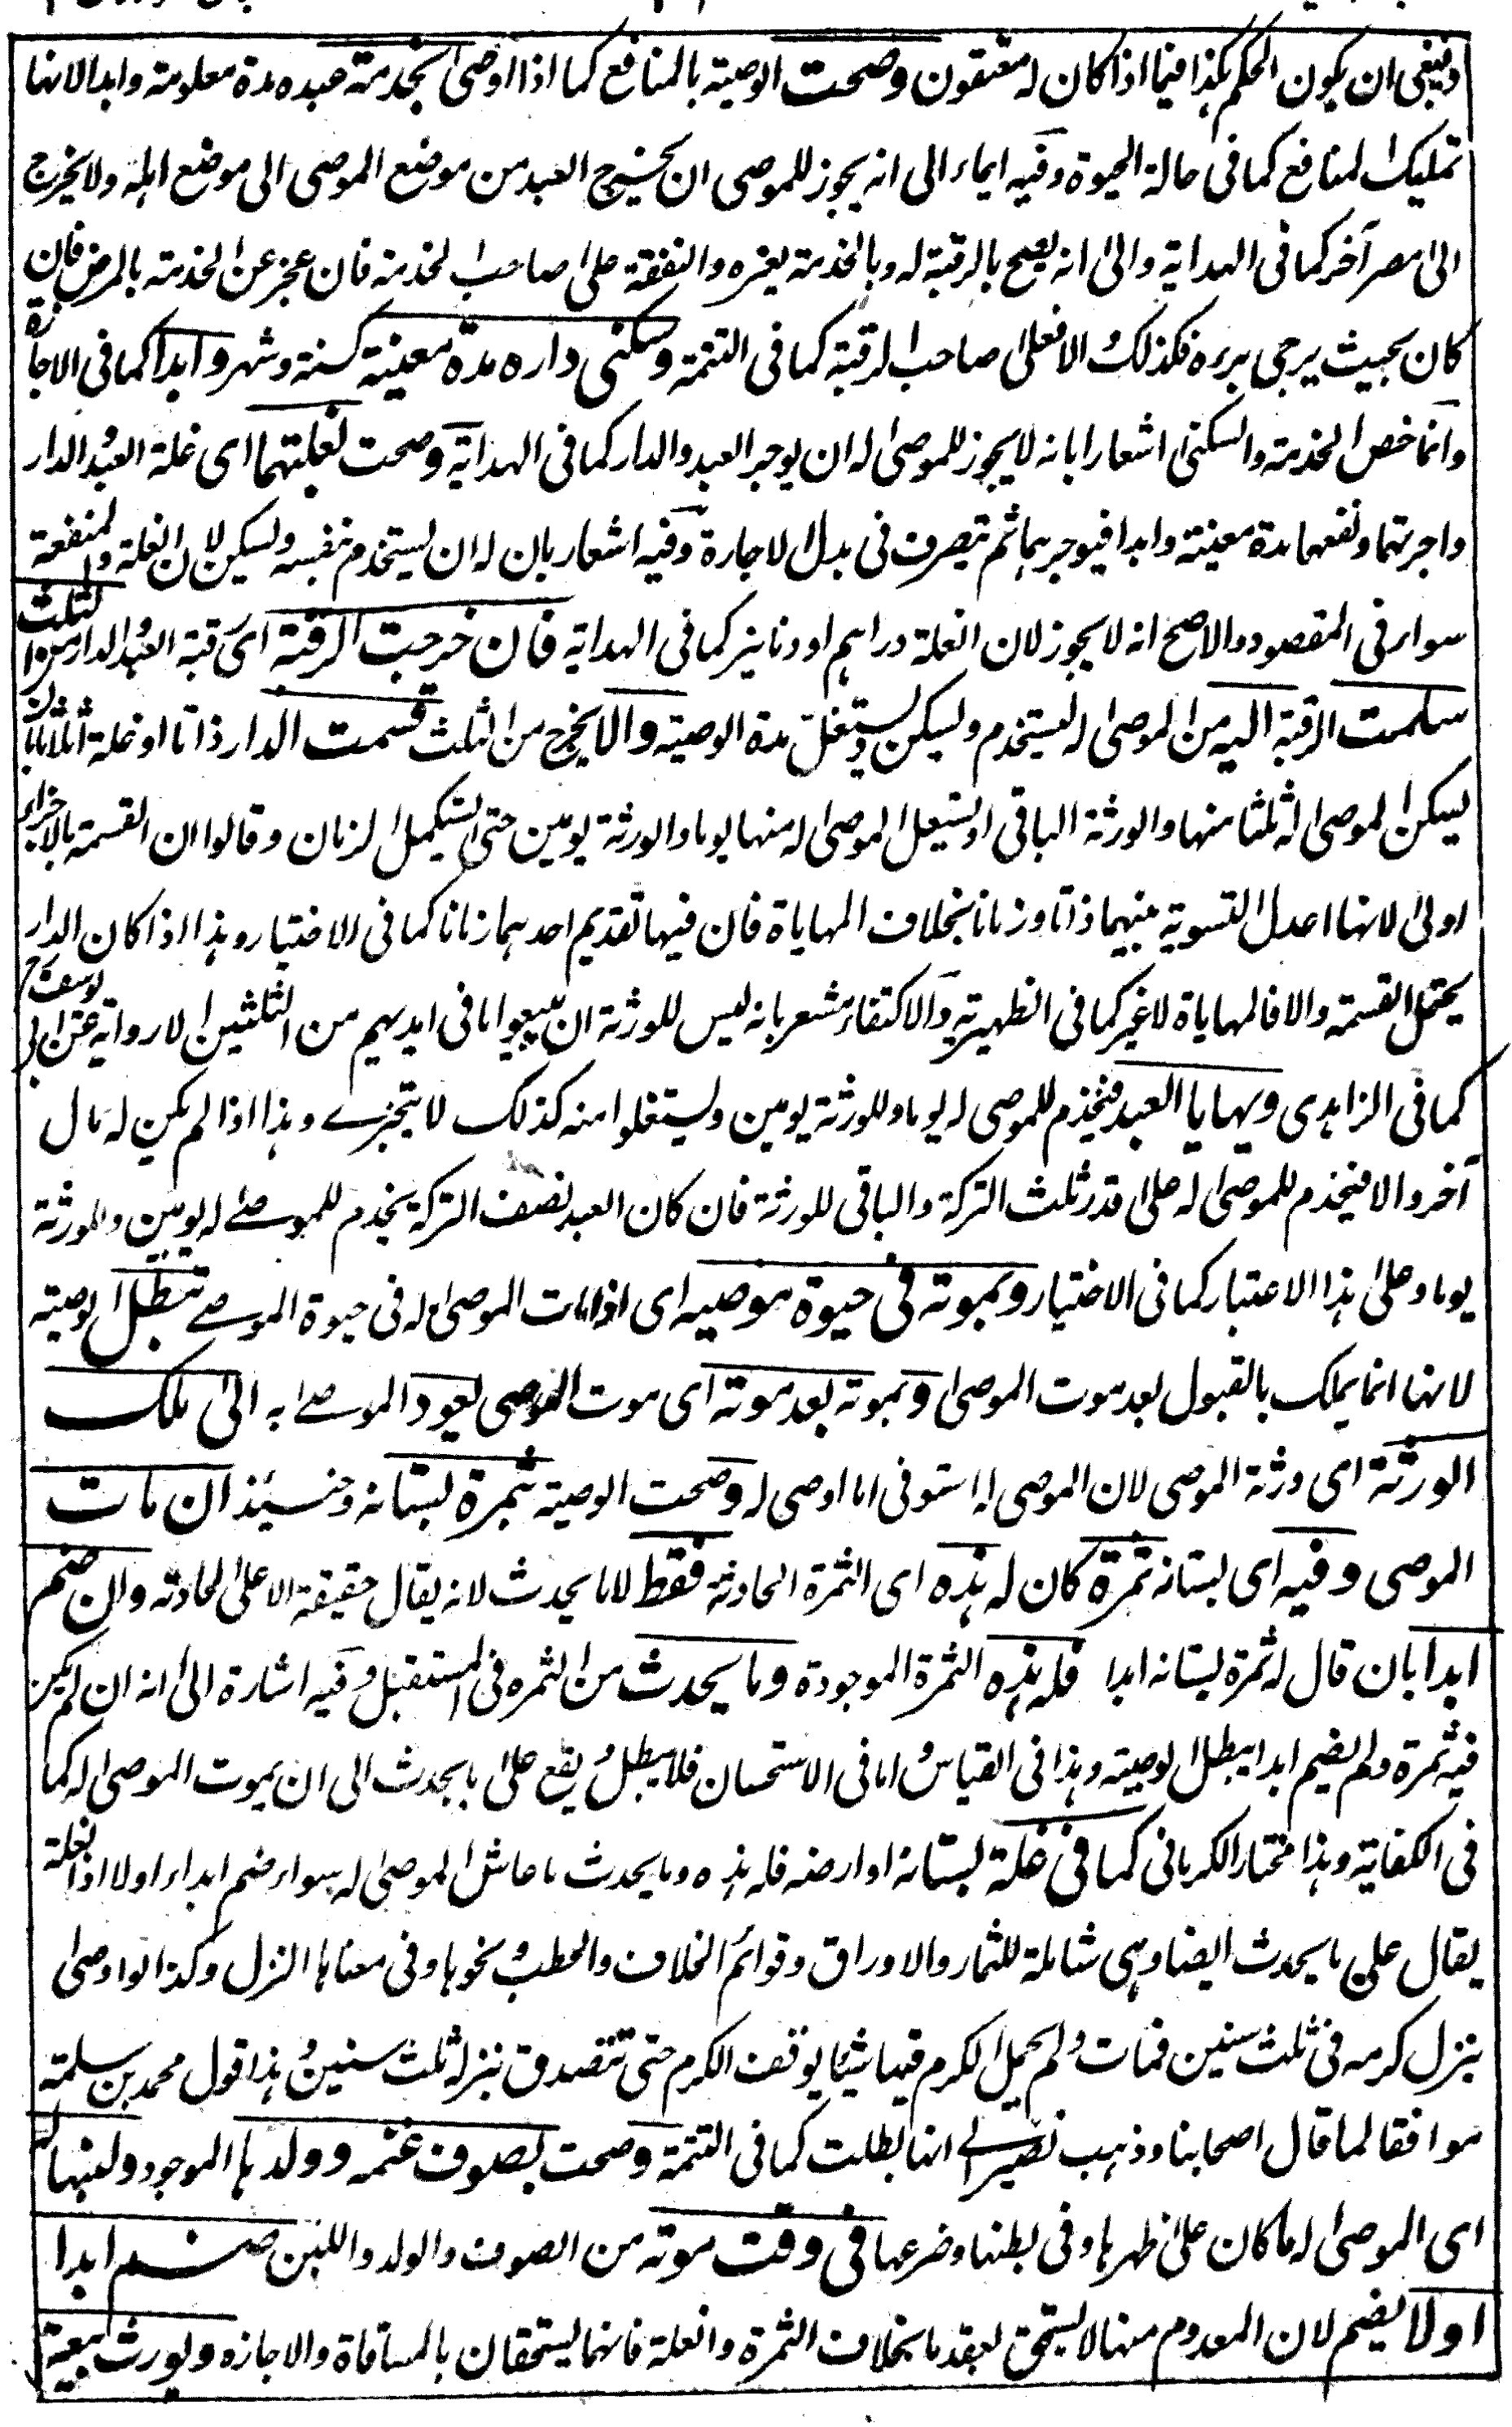 وينبغي ان يكون الحكم هكذا فيما اذا كان له معتقون وصحت الوصية بالمنافع كما اذا اوصى بخدمة عبده مدة معلومة وابدا لانها
تمليك المنافع كما فى حالة الحيوة وفيه ايماء الى انه يجوز للموصى ان يخرج العبد من موضع الموصى الى موضع اهله ولا يخرج
الى مصر آخر كما فى الهداية والى انه يصح بالرقبة له وبالخدمة لغيره والنفقة على صاحب الخدمة فان عجز عن الخدمة بالمرض فان
كان بحيث يرجى برءه فكذلك والا فعلى صاحب الرقبة كما فى التتمة وسكنى داره مدة معينة كسنة وشهر وابدا كما فى الاجازة
وانما خص الخدمة والسكنى اشعارا بانه لا يجوز للموصى له ان يوجر العبد والدار كما فى الهداية وصحت لغلتهما اى غلة العبد والدار
واجرتهما ونفعهما مدة معينة وابدا فيوجر هما ثم يتصرف فى بدل الاجارة وفيه اشعار بان له ان يستخدم بنفسه ويسكن لان الغلة والمنفعة
سواء فى المقصود والاصح انه لا يجوز لان الغلة دراهم او دنانير كما فى الهداية فان خرجت الرقبة اى رقبة العبد والدار من الثلث
سلمت الرقبة اليه من الموصى له ليستخدم ويسكن ويستغل مدة الوصية والا يخرج من الثلث قسمت الدار ذاتا او غلة اثلاثا بان
يسكن الموصى له ثلثا منها والورثة الباقى او يستغل الموصى له منها يوما والورثة يومين حتى يستكمل الزمان وقالوا ان القسمة بالاجزاء
اولى لانها اعدل التسوية بينهما ذاتا وزمانا بخلاف المهاياة فان فيها تقديم احدهما زمانا كما فى الاختيار وهذا اذا كان الدار
يحتمل القسمة والا فالمهاياة لا غير كما فى الظهيرية والاكتفاء مشعر بانه ليس للورثة ان يبيعوا ما فى ايديهم من الثلثين الا رواية عن ابى يوسف رح
كما فى الزاهدى ويهايا العبد فيخدم للموصى له يوما وللورثة يومين وليستغلوا منه كذلك لا يتجزے وهذا اذا لم يكن له مال
آخر والا فيخدم للموصى له على قدر ثلث التركة والباقى للورثة فان كان العبد نصف التركة يخدم للموصے له يومين وللورثة
يوما وعلى هذا الاعتبار كما فى الاختيار وبموته فى حيوة موصيه اى اذا مات الموصى له فى حيوة الموصے تبطل الوصية
لانها انما يملك بالقبول بعد موت الموصى وبموته بعد موته اى موت الموصى يعود الموصے به الى ملك
الورثة اى ورثة الموصى لان الموصى له استوفى ما اوصى له وصحت الوصية بثمرة بستانه وحينئذ ان مات
الموصى وفيه اى بستانه ثمرة كان له هذه اى الثمرة الحادثة فقط لا ما يحدث لانه يقال حقيقة الا على الحادثة وان ضم
ابدا بان قال له ثمرة بستانه ابدا فله هذه الثمرة الموجودة وما يحدث من الثمره فى المستقبل وفيه اشارة الى انه ان لم يكن
فيه ثمرة ولم يضم ابدا يبطل الوصية وهذا فى القياس واما فى الاستحسان فلا يبطل ويقع على ما يحدث الى ان يموت الموصى له كما
فى الكفاية وهذا مختار الكرمانى كما فى غلة بستانه او ارضه فله هذه وما يحدث ما عاش الموصى له سواء ضم ابدا او لا اذ الغلة
يقال على ما يحدث ايضا وهى شاملة للثمار والاوراق وقوائم الخلاف والحطب ونحوها وفى معناها النزل وكذا لو اوصى
بنزل كرمه فى ثلث سنين فمات ولم يحمل الكرم فيها شيئا يوقف الكرم حتى تتصدق بنزله ثلث سنين وهذا قول محمد بن سلمة
موافقا لما قال اصحابنا وذهب نصير الے انها بطلت كما فى التتمة وصحت بصوف غنمه وولدها الموجود ولبنها له
اى الموصى له ما كان على ظهرها وفى بطنها وضرعها فى وقت موته من الصوف والولد واللبن ضم ابدا
اولا يضم لان المعدوم منها لا يستحق بعقد ما بخلاف الثمرة والغلة فانهما يستحقان بالمساقاة والاجازه ويورث بيعة